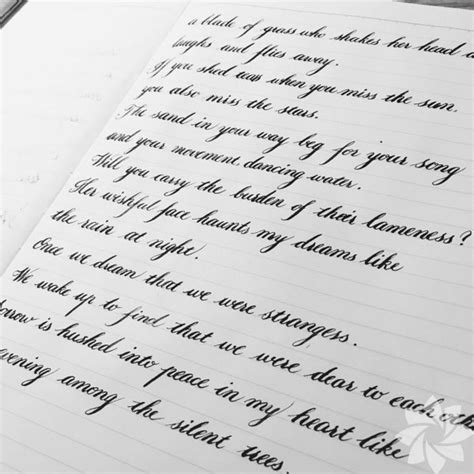 a blade of grass who shakes her head a
laughs and flies away.
If you shed tears when you miss the sun
you also miss the stars.
The sand in your way beg for your song
and your movement, dancing water.
Will you carry the burden of their lameness?
Her wishful face haunts my dreams like
the rain at night.
Once we dream that we were strangers.
We wake up to find that we were dear to each oth
orrow is hushed into peace in my heart like
evening among the silent trees.